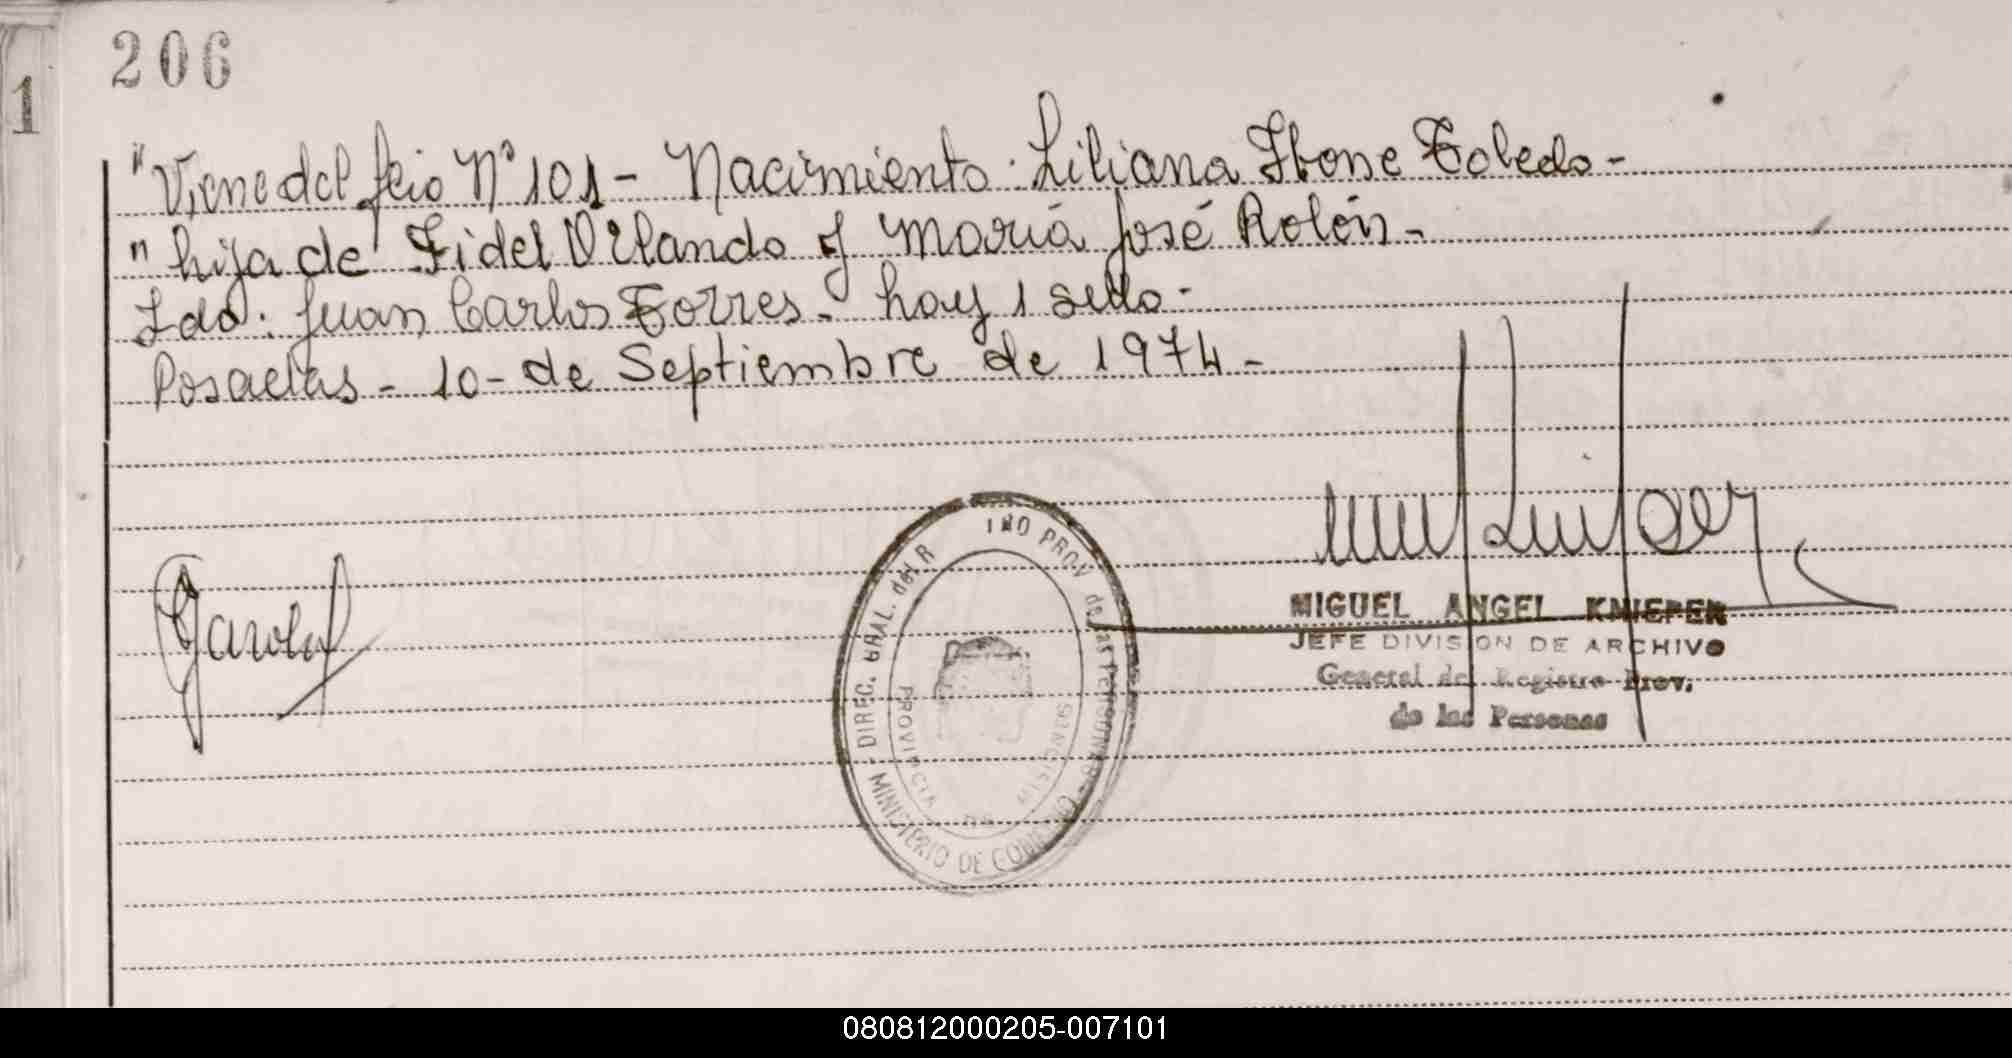 206
1
"Viene del feio Nº 101 - Nacimiento: Liliana Ibone Toledo -
" hija de Fidel Orlando y María José Rolón -
Fdo: Juan Carlos Torres - hay 1 sello -
Posadas - 10 - de Septiembre de 1974 -
DIREC. GRAL. del R INO PROV de las Personas
MINISTERIO DE GOBIERNO
PROVINCIA DE MISIONES
MIGUEL ANGEL KNIEPER
JEFE DIVISION DE ARCHIVO
General del Registro Prov.
de las Personas
080812000205-007101